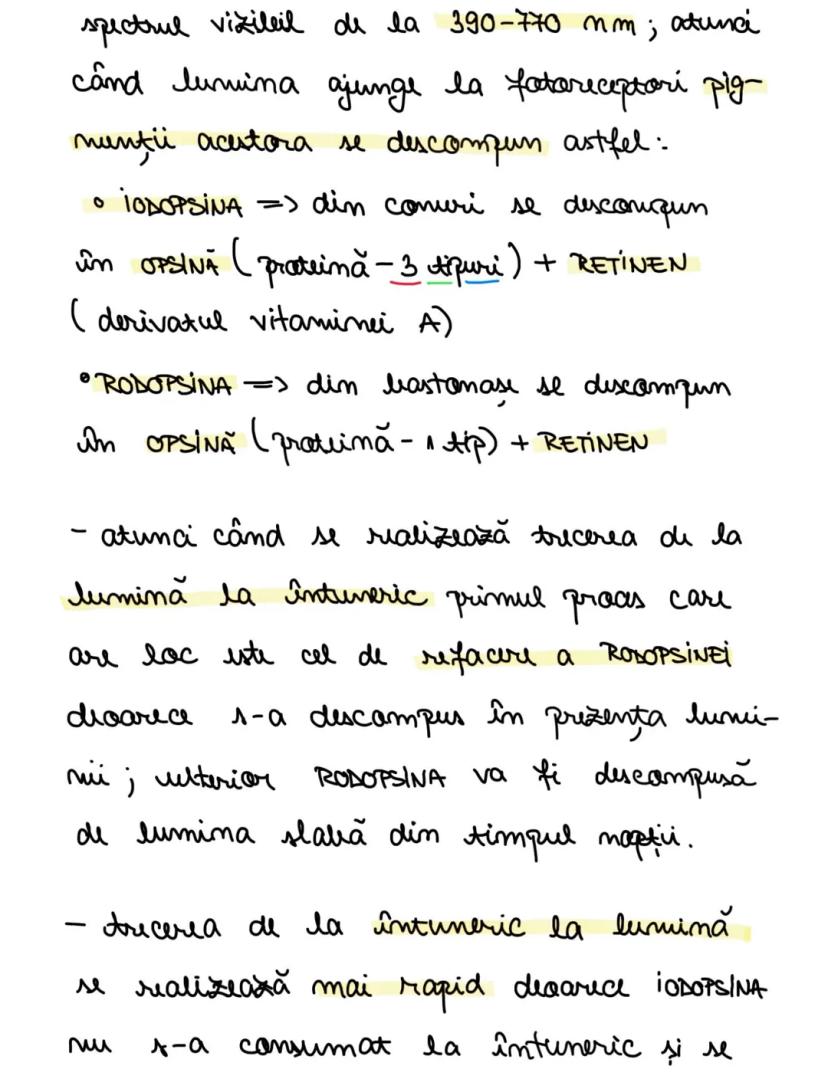 spectrul vizibil de la 390-770 nm ; atunci
când lumina ajunge la fotoreceptori pig-
menții acestora se descompun astfel:
• IODOPSINA => din conuri se descompun
în OPSINĂ (proteină - 3 tipuri) + RETINEN
(derivatul vitaminei A)
• RODOPSINA => din bastonașe se descompun
în OPSINĂ (proteină - 1 tip) + RETINEN
- atunci când se realizează trecerea de la
lumină la întuneric primul proces care
are loc este cel de refacere a RODOPSINEI
deoarece s-a descompus în prezența lumi-
nii ; ulterior RODOPSINA va fi descompusă
de lumina slabă din timpul nopții.
- trecerea de la întuneric la lumină
se realizează mai rapid deoarece IODOPSINA
nu s-a consumat la întuneric și se